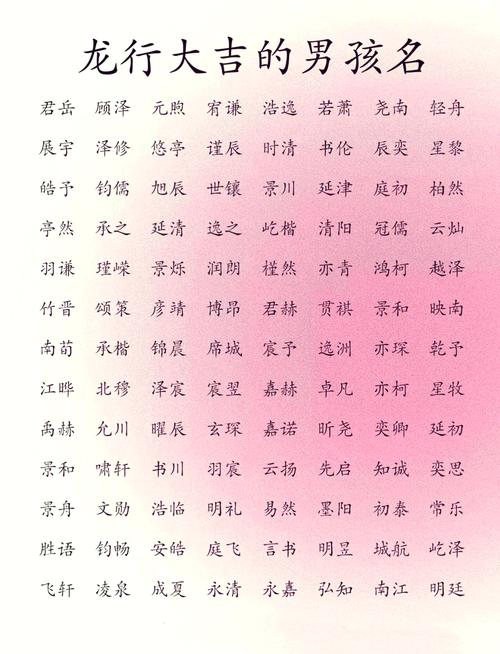 龙行大吉的男孩名
君岳 顾泽 元煦 宥谦 浩逸 若萧 尧南 轻舟
展宇 泽修 悠亭 谨辰 时清 书伦 辰奕 星黎
皓予 钧儒 旭辰 世镶 景川 延津 庭初 柏然
亭然 承之 延清 逸之 屹楷 清阳 冠儒 云灿
羽谦 瑾嵘 景烁 润朗 槿然 亦青 鸿柯 越泽
竹晋 颂策 彦靖 博昂 君赫 贯祺 景和 映南
南荀 承楷 锦晨 席城 宸予 逸洲 亦琛 乾予
江晔 北穆 泽宸 宸翌 嘉赫 卓凡 亦柯 星牧
禹赫 允川 曜辰 玄琛 嘉诺 昕尧 奕卿 延初
景和 啸轩 书川 羽宸 云扬 先启 知诚 奕思
景舟 文勋 浩临 明礼 易然 墨阳 初泰 常乐
胜语 钧畅 安皓 庭飞 言书 明昱 城航 屹泽
飞轩 凌泉 成夏 永清 永嘉 弘知 南江 明廷